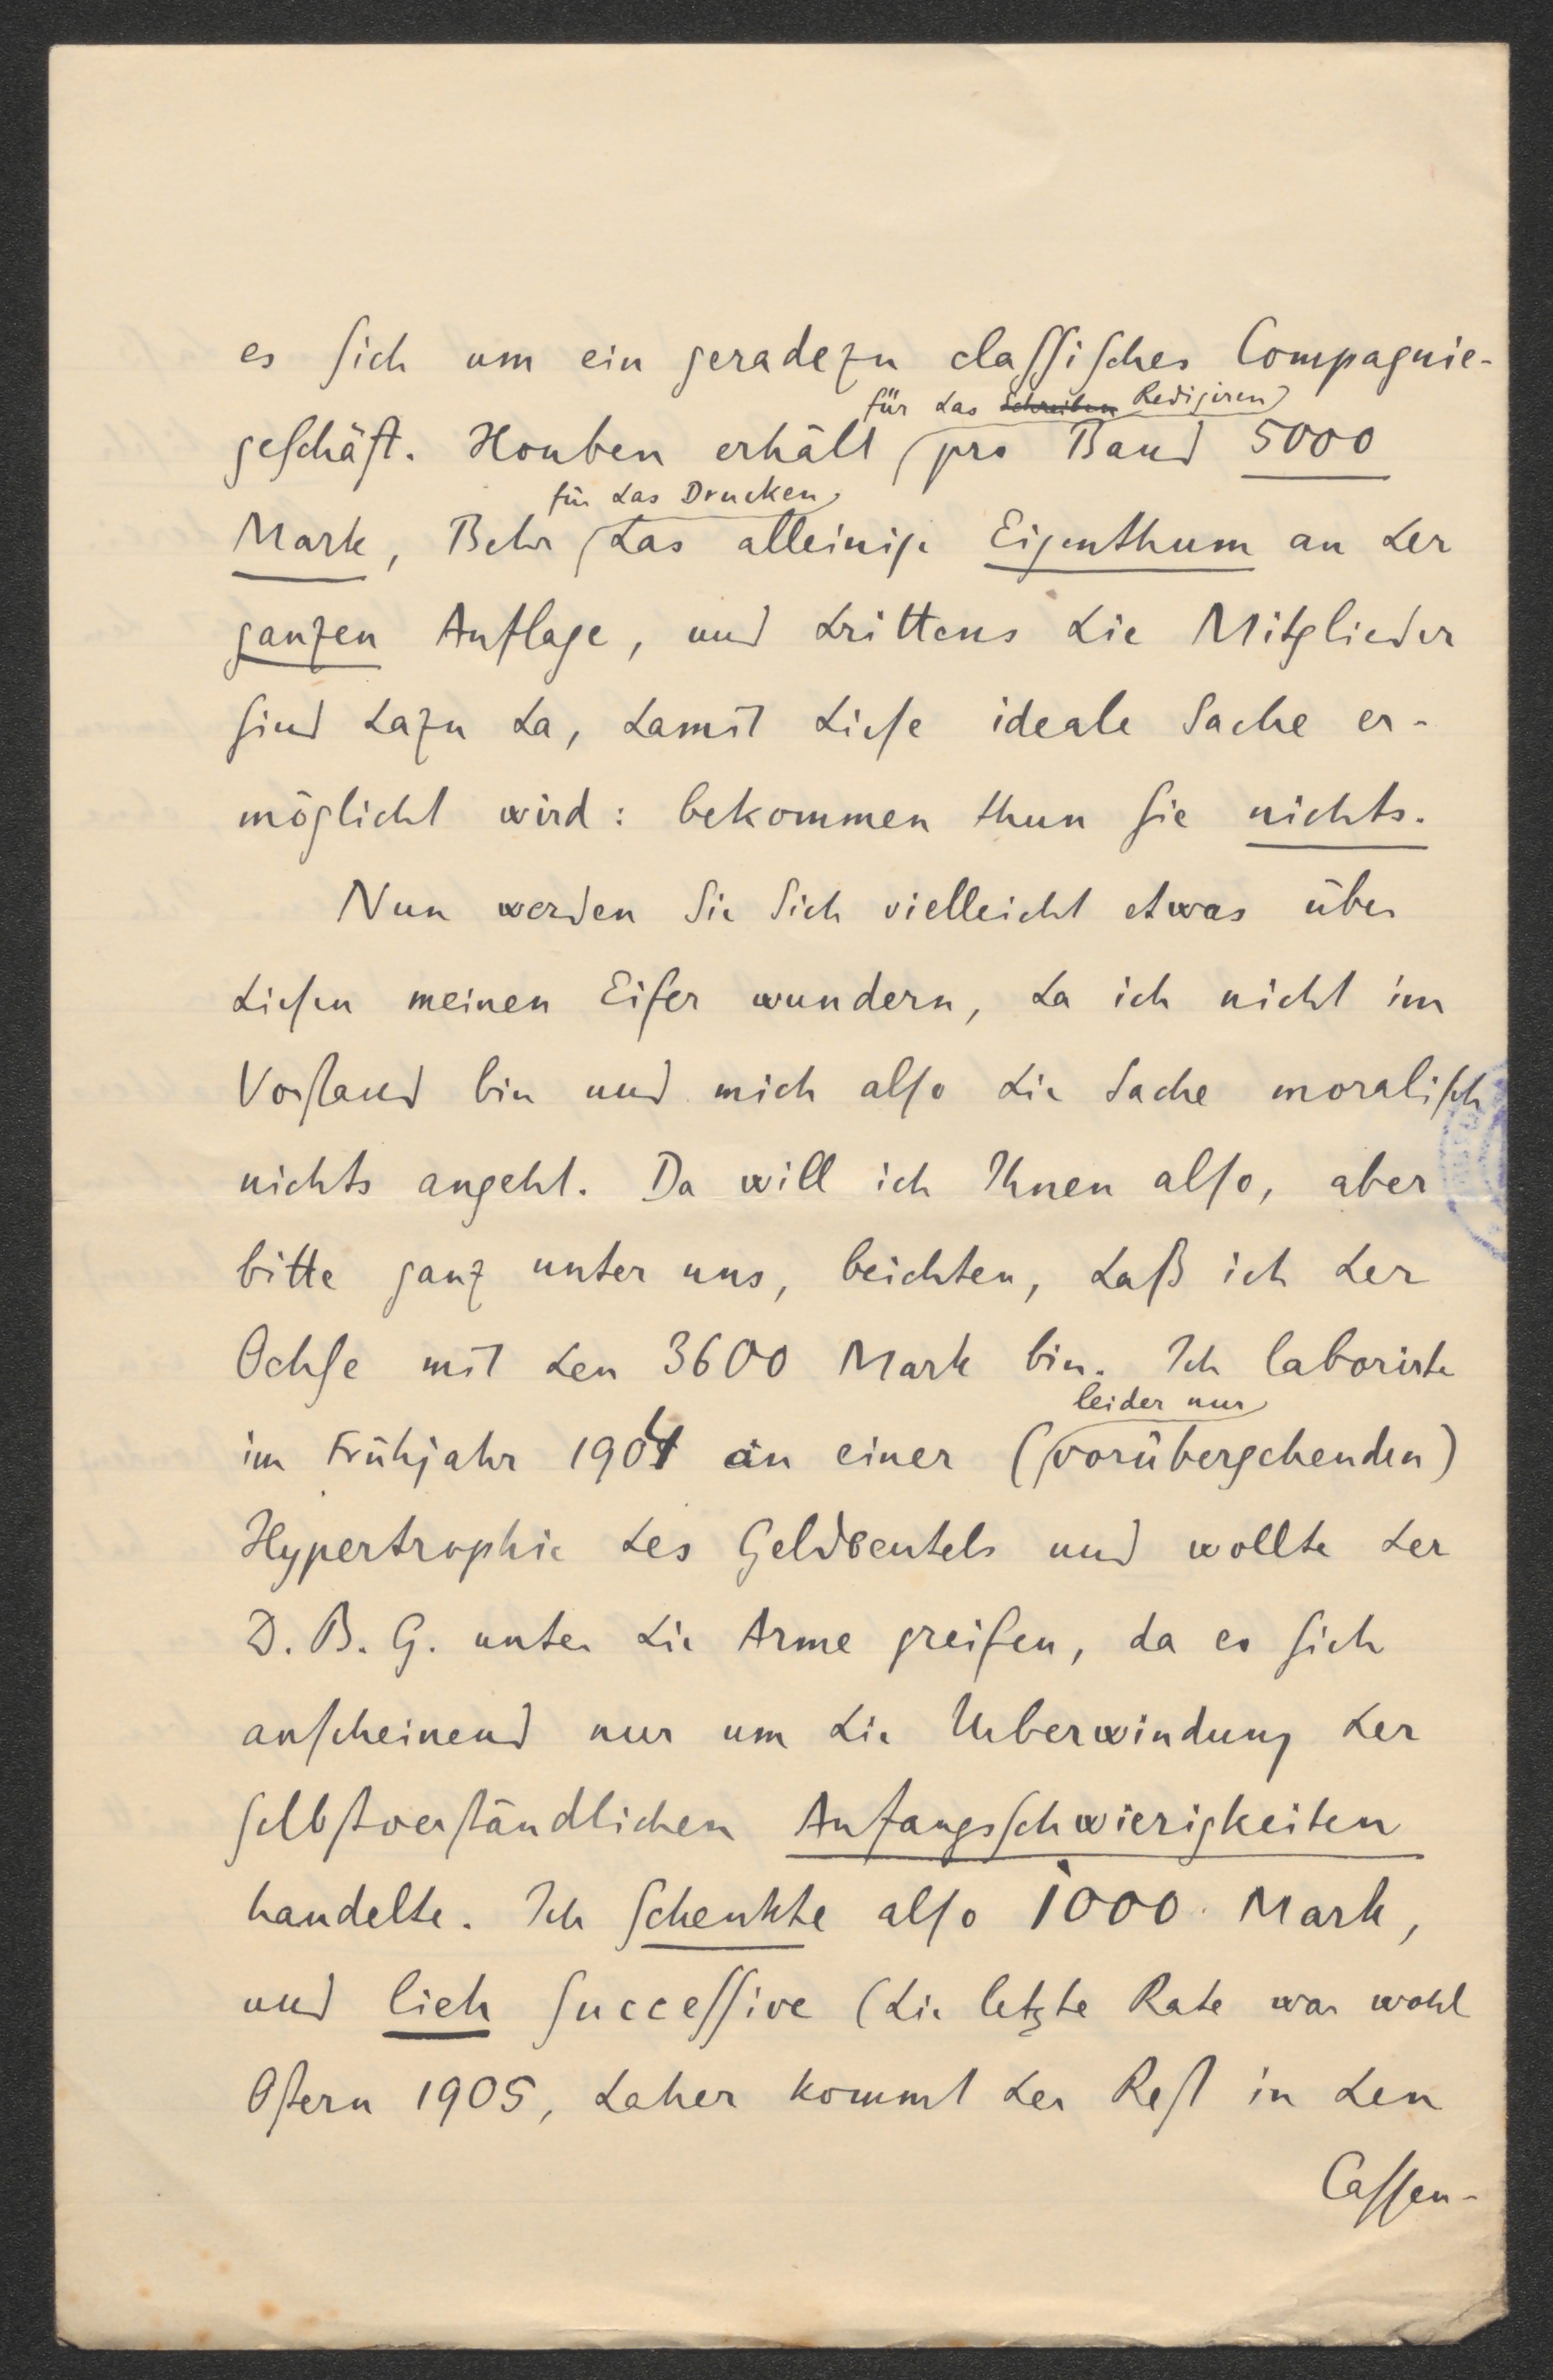 es sich um ein geradezu classisches Compagnie-
für das Schreiben Redigiren
geschäft. Houben erhält pro Band 5000
für das Drucken
Mark, Behr das alleinige Eigenthum an der
ganzen Auflage, und drittens die Mitglieder
sind dazu da, damit diese ideale Sache er-
möglicht wird: bekommen thun sie nichts.
Nun werden Sie Sich vielleicht etwas über
diesen meinen Eifer wundern, da ich nicht im
Vorstand bin und mich also die Sache moralisch
nichts angeht. Da will ich Ihnen also, aber
bitte ganz unter uns, beichten, daß ich der
Ochse mit den 3600 Mark bin. Ich laborirte
leider nur
im Frühjahr 1904 an einer (vorübergehenden)
Hypertrophie des Geldbeutels und wollte der
D. B. G. unter die Arme greifen, da es sich
anscheinend nur um die Ueberwindung der
selbstverständlichen Anfangsschwierigkeiten
handelte. Ich schenkte also 1000 Mark,
und lieh successive (die letzte Rate war wohl
Ostern 1905, daher kommt der Rest in den
Cassen-